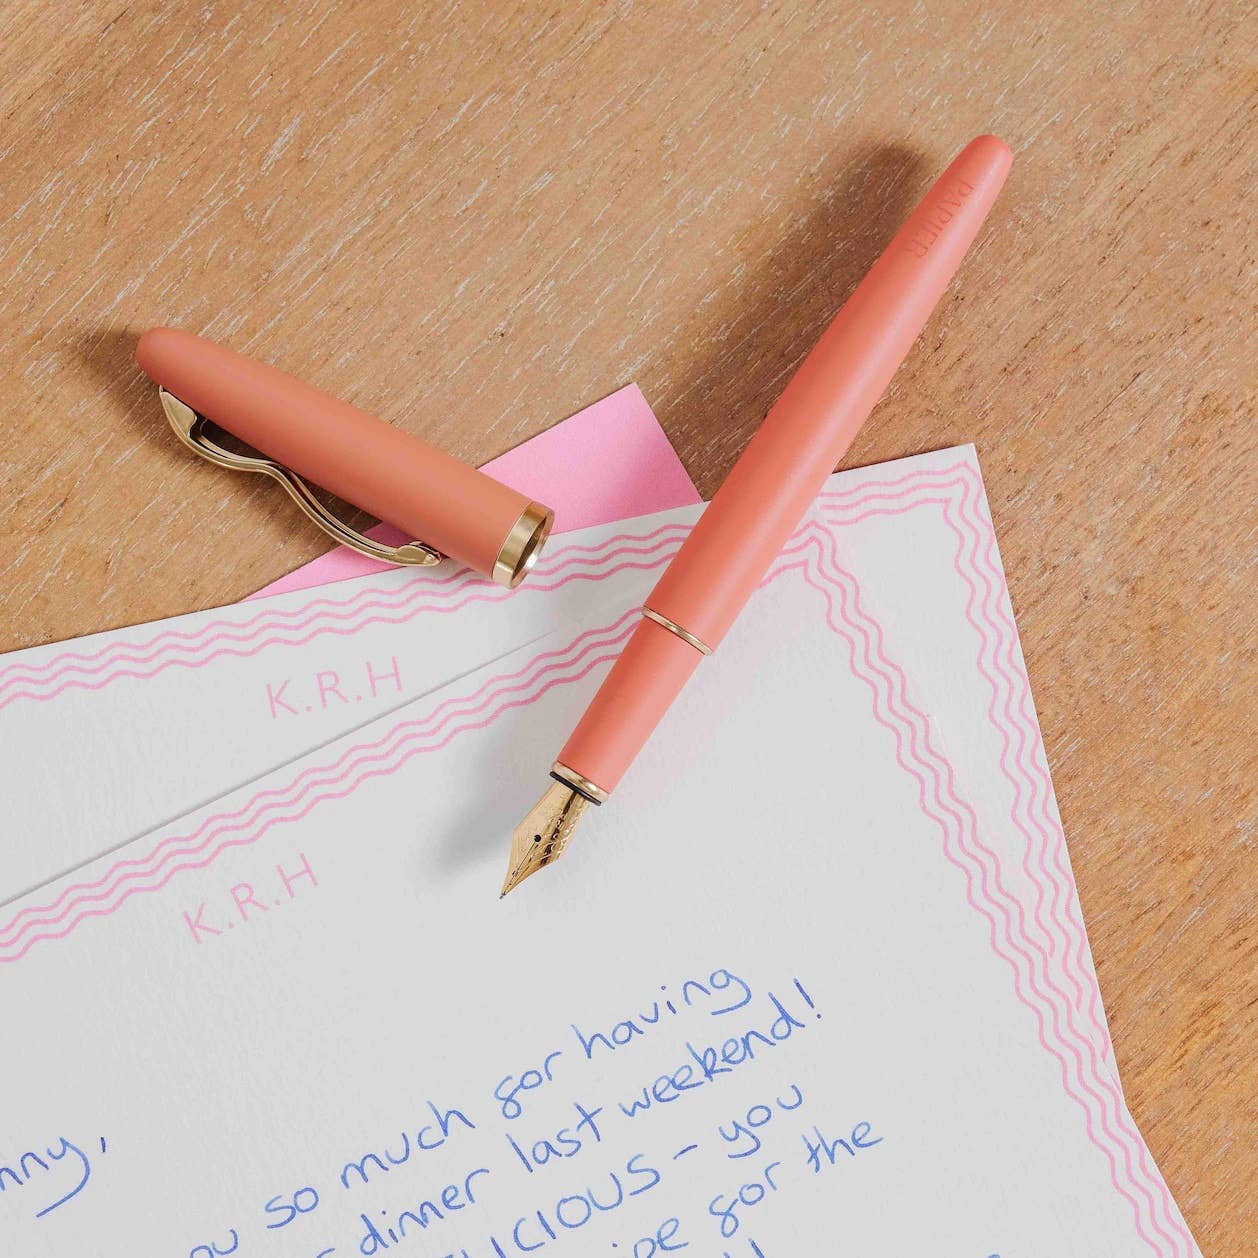 PAPIER
K.R.H
K.R.H
so much for having
dinner last weekend!
- you
for the